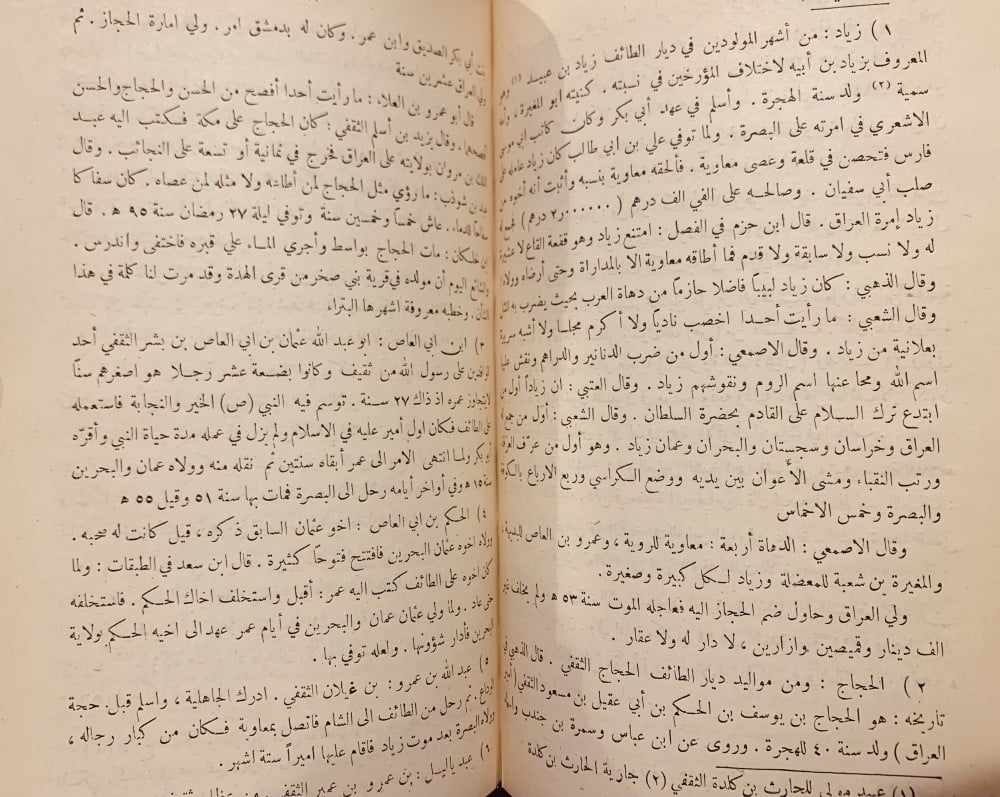 ١ ) زياد : من أشهر المولودين في ديار الطائف زياد بن عبيد (١)
المعروف بزياد بن أبيه لاختلاف المؤرخين في نسبته . كنيته ابو المغيرة ،
سمية (٢) ولد سنة الهجرة . وأسلم في عهد أبي بكر وكان كاتب ابي موسى
الاشعري في امرته على البصرة . ولما توفي علي بن ابي طالب كان زياد عامله على
فارس فتحصن في قلعة وعصى معاوية . فألحقه معاوية بنسبه وأثبت أنه أخوه من
صلب أبي سفيان . وصالحــه على الفي الف درهم ( ٢٫٠٠٠٫٠٠٠ درهم )
زياد إمرة العراق . قال ابن حزم في الفصل : امتنع زياد وهو فقعة القاع لا عشيرة
له ولا نسب ولا سابقة ولا قدم فما أطاقه معاوية الا بالمداراة وحتى أرضاه وولاه
وقال الذهبي : كان زياد لبيباً فاضلا حازماً من دهاة العرب بحيث يضرب به المثل
وقال الشعبي : ما رأيت أحــدا اخصب نادياً ولا أكرم مجلسا ولا أشبه سريرة
بعلانية من زياد . وقال الاصمعي : أول من ضرب الدنانير والدراهم ونقش عليها
اسم الله ومحا عنها اسم الروم ونقوشهم زياد . وقال العتبي : ان زياداً أول من
ابتدع ترك الســلام على القادم بحضرة السلطان . وقال الشعبي : أول من جمع له
العراق وخراسان وسجستان والبحران وعمان زياد . وهو أول من عرّف العرفاء
ورتب النقباء ومشى الأعوان بين يديه ووضع الكراسي وربع الارباع بالكوفة
والبصرة وخمس الاخماس
وقال الاصمعي : الدهاة أربعة : معاوية للروية ، وعمرو بن العاص للبديهة ،
والمغيرة بن شعبة للمعضلة وزياد لكل كبيرة وصغيرة .
ولي العراق وحاول ضم الحجاز اليه فعاجله الموت سنة ٥٣ هـ ولم يخلف غير
الف دينار وقميصين وازارين ، لا دار له ولا عقار .
٢ ) الحجاج : ومن مواليد ديار الطائف الحجاج الثقفي . قال الذهبي في
تاريخه : هو الحجاج بن يوسف بن الحكم بن أبي عقيل بن مسعود الثقفي ( أمير
العراق ) ولد سنة ٤٠ للهجرة . وروى عن ابن عباس وسمرة بن جندب واسماء
(١) عبيد مولى للحارث بن كلدة الثقفي (٢) جارية الحارث بن كلدة
بنت أبي بكر الصديق وابن عمر . وكان له بدمشق امر . ولي امارة الحجاز . ثم
ولي العراق عشرين سنة
قال أبو عمرو بن العلاء : ما رأيت أحدا أفصح من الحسن والحجاج والحسن
أفصحهما . وقال يزيد بن أسلم الثقفي : كان الحجاج على مكة فكتب اليه عبــد
الملك بن مروان بولايته على العراق فخرج في ثمانية أو تسعة على النجائب . وقال
عبد بن شوذب : ما رؤي مثل الحجاج لمن أطاعه ولا مثله لمن عصاه . كان سفاكا
سفاحا للدماء . عاش خمساً وخمسين سنة وتوفي ليلة ٢٧ رمضان سنة ٩٥ هـ . قال
بن خلكان : مات الحجاج بواسط وأجري المــاء علي قبره فاختفى واندرس .
والشائع اليوم أن مولده في قرية بني صخر من قرى الهدة وقد مرت لنا كلمة في هذا
الشأن . وخطبه معروفة اشهرها البتراء
٣) ابن ابي العاص : ابو عبد الله عثمان بن ابي العاص بن بشر الثقفي أحد
الوافدين على رسول الله من ثقيف وكانوا بضــعة عشر رجــلا هو اصغرهم سنّاً
لا يتجاوز عمره اذ ذاك ٢٧ ســنة . توسم فيه النبي (ص) الخير والنجابة فاستعمله
على الطائف فكان اول أمير عليه في الاسلام ولم يزل في عمله مدة حياة النبي وأقرّه
أبو بكر ولما انتهى الامر الى عمر أبقاه سنتين ثم نقله منه وولاه عمان والبحرين
سنة ١٥ هـ وفي أواخر أيامه رحل الى البصرة فمات بها سنة ٥١ وقيل ٥٥ هـ
٤) الحكم بن ابي العاص : اخو عثمان السابق ذكره ، قيل كانت له صحبه .
وولاه اخوه عثمان البحرين فافتتح فتوحاً كثيرة . قال ابن سعد في الطبقات : ولما
كان اخوه على الطائف كتب اليه عمر : أقبل واستخلف اخاك الحــكم . فاستخلفه
حتى عاد . ولما ولي عثمان عمان والبحرين في أيام عمر عهد الى اخيه الحــكم بولاية
البحرين فأدار شؤونها . ولعله توفي بها .
٥) عبد الله بن عمرو : بن غيلان الثقفي . ادرك الجاهلية ، واسلم قبل حجة
الوداع . ثم رحل من الطائف الى الشام فاتصل بمعاوية فــكان من كبار رجاله ،
وولاه البصرة بعد موت زياد فاقام عليها اميراً ستة اشهر .
٦) عبد ياليــل : بن عمرو بن عمير الثقفي .